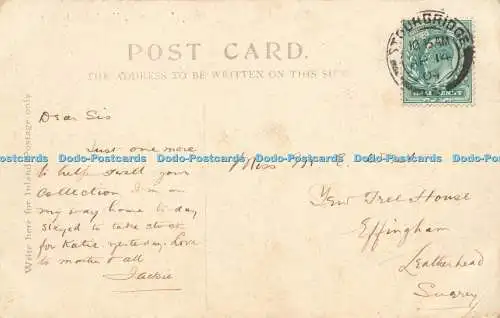 POST CARD.
THE ADDRESS TO BE WRITTEN ON THIS SIDE
STOURBRIDGE
Write here for Inland Postage only.
Dear Sis
Just one more
to help swell your
Collection I'm on
my way home to day
stayed to take stock
for Katie yesterday. Love
to mother & all
Jackie
Miss
Yew Tree House
Effingham
Leatherhead
Surrey
Dodo-Postcards Dodo-Postcards Dodo-Postcards Dodo-Postcards Dodo-Postcards